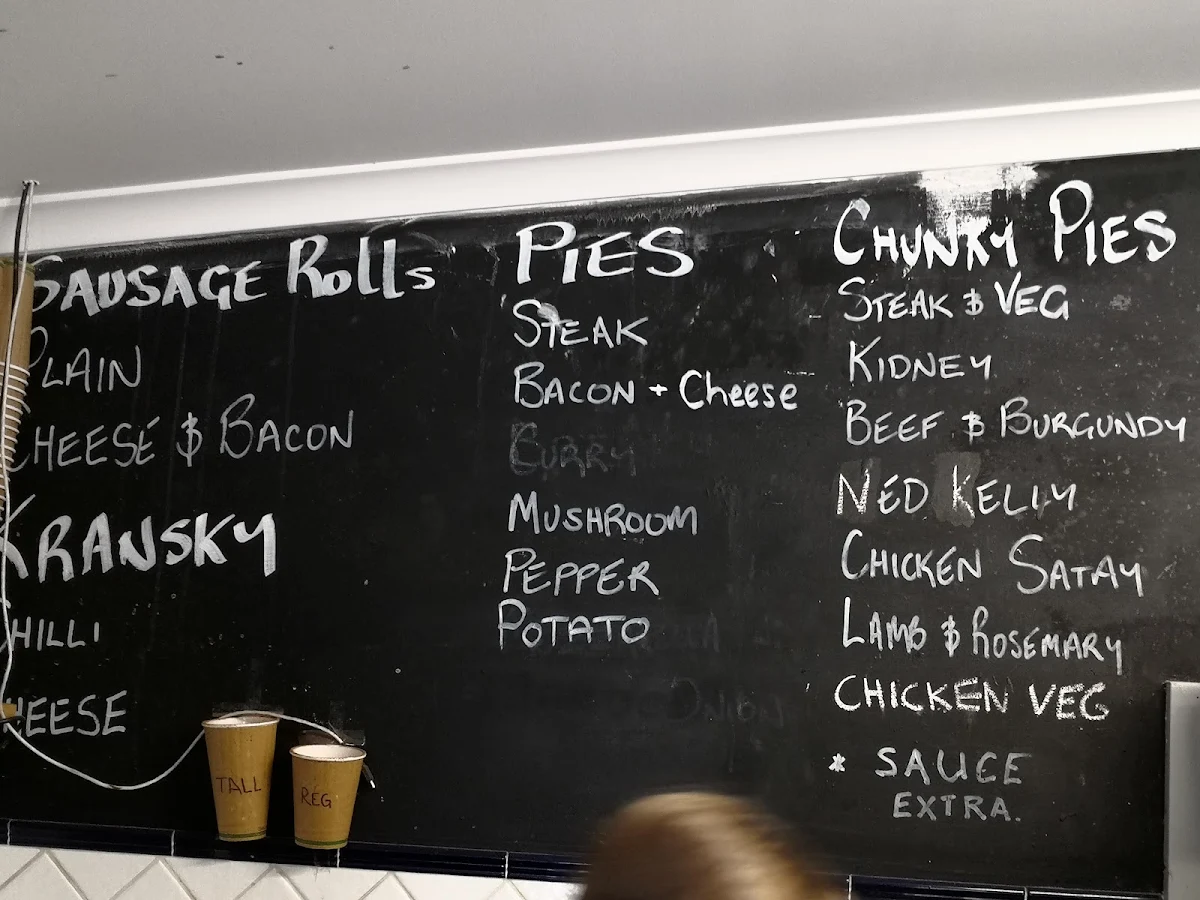 SAUSAGE Rolls
PLAIN
CHEESE & BACON
KRANSKY
CHILLI
CHEESE
TALL
REG
PIES
STEAK
BACON + Cheese
CURRY
MUSHROOM
PEPPER
POTATO
ONION
CHUNKY PIES
STEAK & VEG
KIDNEY
BEEF & BURGUNDY
NED KELLY
CHICKEN SATAY
LAMB & ROSEMARY
CHICKEN VEG
* SAUCE
EXTRA.